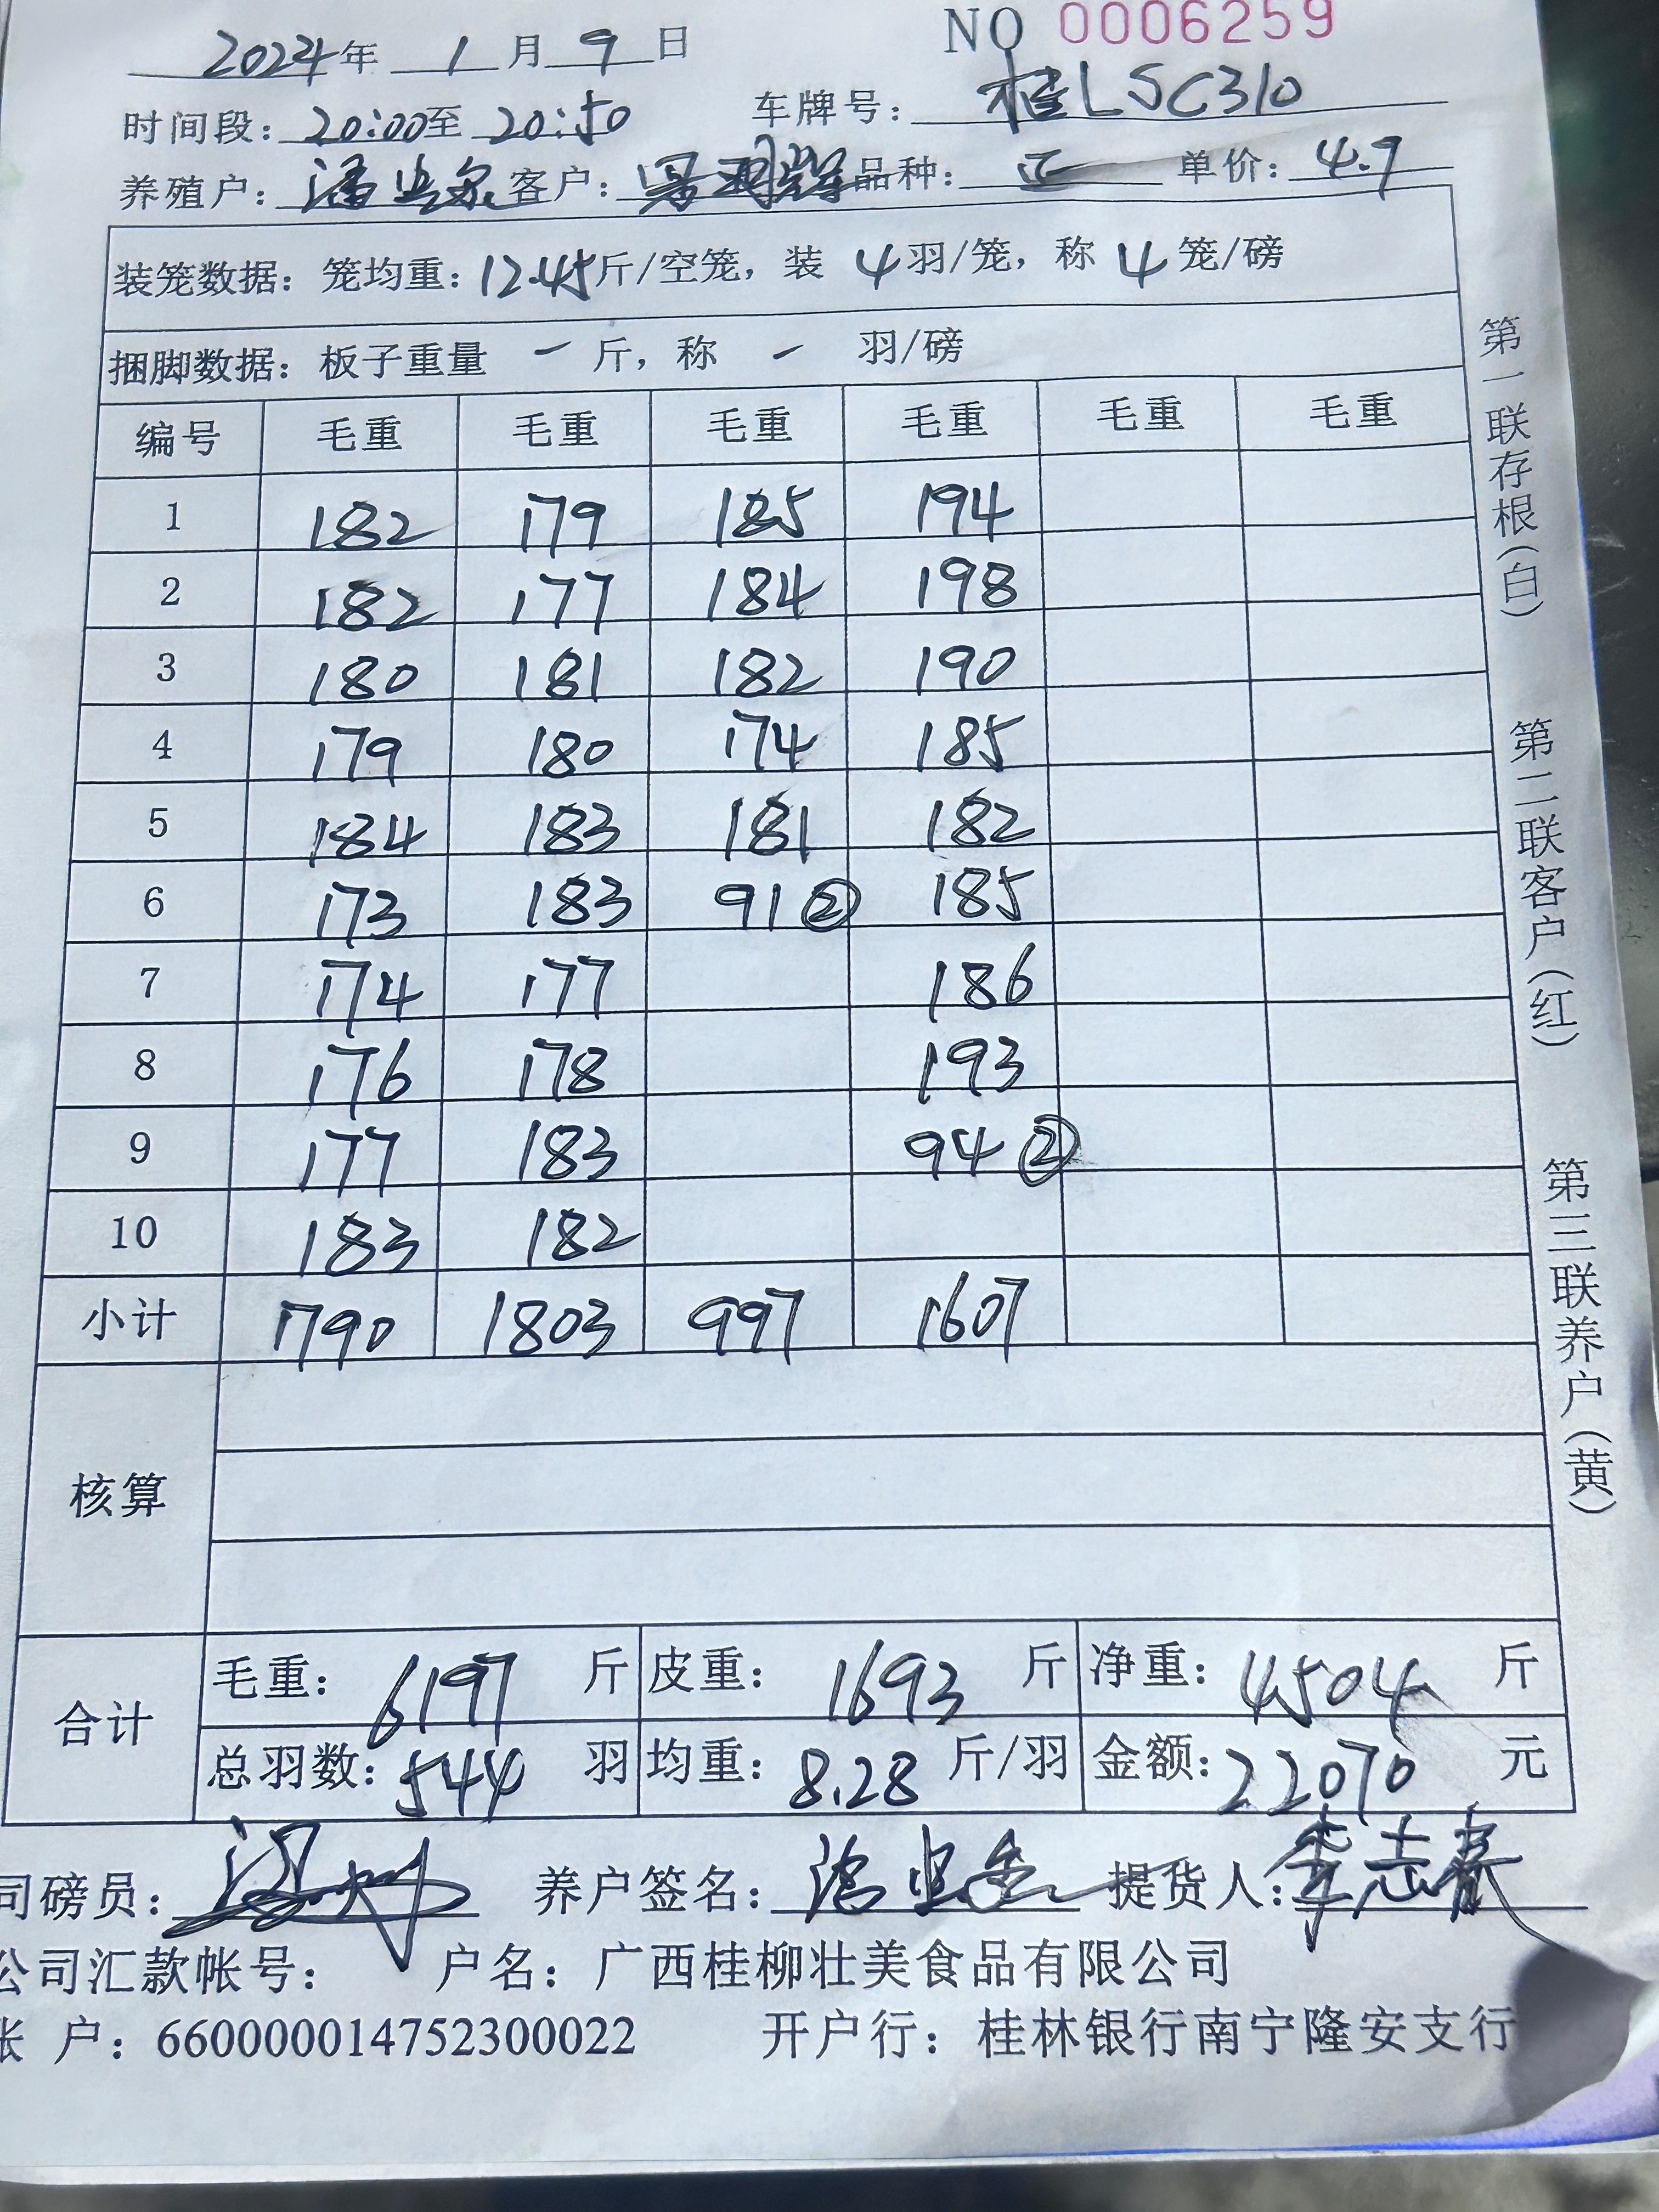 NO 0006259
2024年 1月 9日
时间段：20:00至 20:50 车牌号：桂L5C310
养殖户：潘 客户： 品种：正 单价：4.9
装笼数据：笼均重：12.45斤/空笼，装 4羽/笼，称 4笼/磅
捆脚数据：板子重量 一 斤，称 一 羽/磅
编号 毛重 毛重 毛重 毛重 毛重 毛重
1 182 179 185 194
2 182 177 184 198
3 180 181 182 190
4 179 180 174 185
5 184 183 181 182
6 173 183 91② 185
7 174 177 186
8 176 178 193
9 177 183 94②
10 183 182
小计 1790 1803 997 1607
核算
合计 毛重：6197 斤 皮重：1693 斤 净重：4504 斤
总羽数：544 羽 均重：8.28 斤/羽 金额：22070 元
司磅员： 养户签名： 提货人：李志春
公司汇款帐号： 户名：广西桂柳壮美食品有限公司
账 户：660000014752300022 开户行：桂林银行南宁隆安支行
第一联存根（白）
第二联客户（红）
第三联养户（黄）